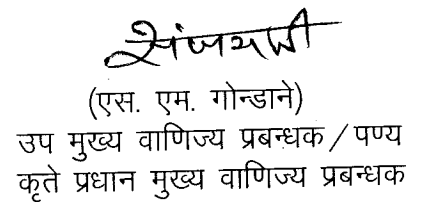 (एस. एम. गोन्डाने)
उप मुख्य वाणिज्य प्रबन्धक / पण्य
कृते प्रधान मुख्य वाणिज्य प्रबन्धक